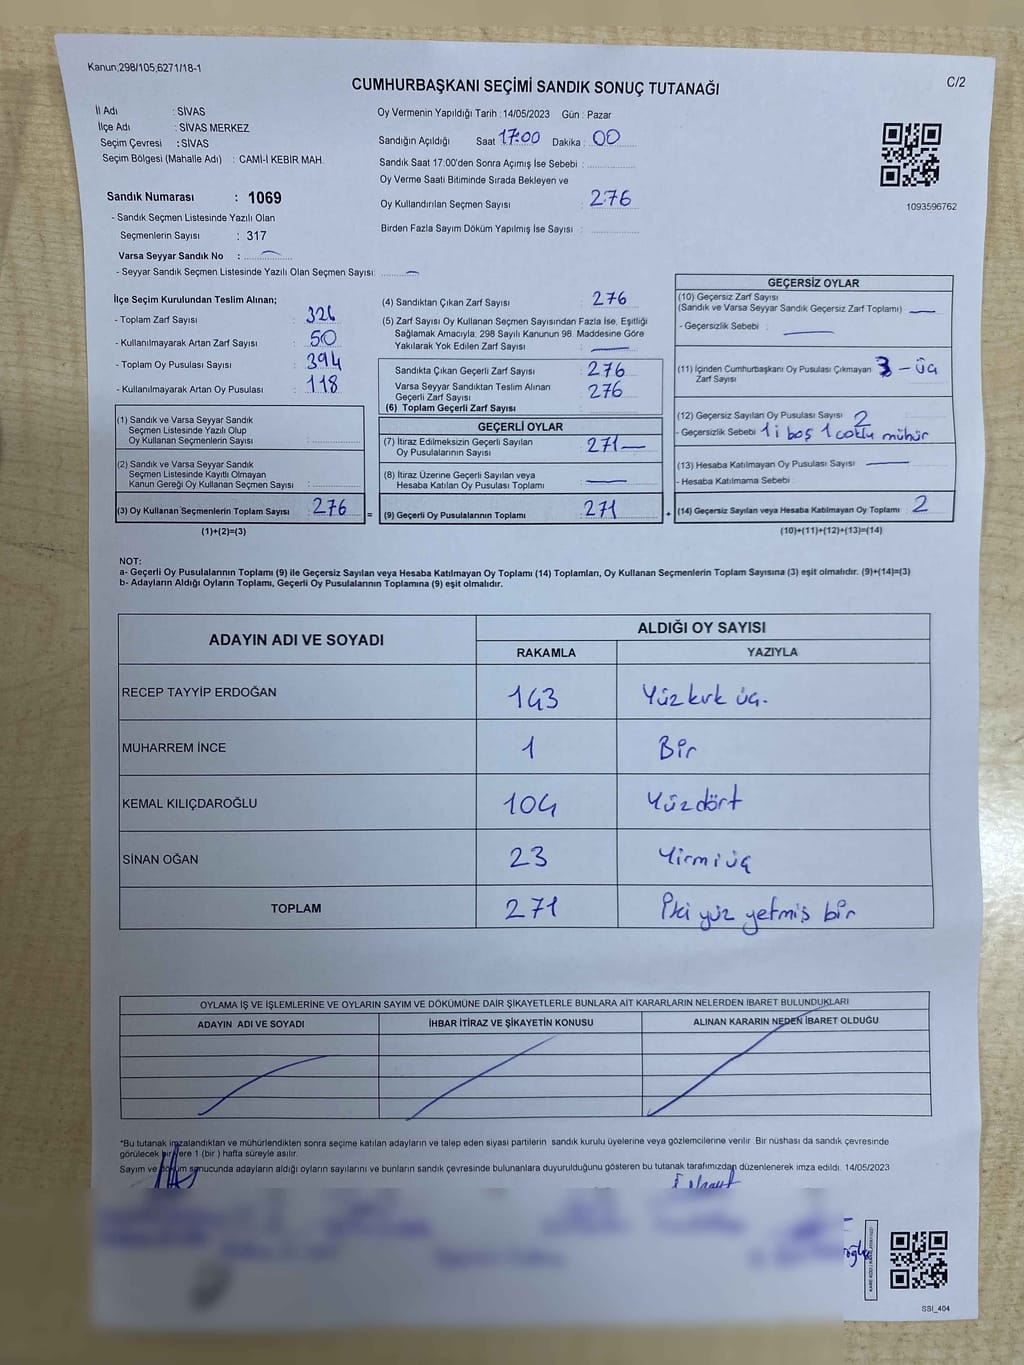 Kanun;298/105,6271/18-1
CUMHURBAŞKANI SEÇİMİ SANDIK SONUÇ TUTANAĞI
C/2
İl Adı : SİVAS
İlçe Adı : SİVAS MERKEZ
Seçim Çevresi : SİVAS
Seçim Bölgesi (Mahalle Adı) : CAMİ-İ KEBİR MAH.
Oy Vermenin Yapıldığı Tarih : 14/05/2023 Gün : Pazar
Sandığın Açıldığı Saat 17:00 Dakika : 00
Sandık Saat 17:00'den Sonra Açımış İse Sebebi :
Oy Verme Saati Bitiminde Sırada Bekleyen ve
Oy Kullandırılan Seçmen Sayısı : 276
Birden Fazla Sayım Döküm Yapılmış İse Sayısı :
1093596762
Sandık Numarası : 1069
- Sandık Seçmen Listesinde Yazılı Olan
Seçmenlerin Sayısı : 317
Varsa Seyyar Sandık No : —
- Seyyar Sandık Seçmen Listesinde Yazılı Olan Seçmen Sayısı: —
İlçe Seçim Kurulundan Teslim Alınan;
- Toplam Zarf Sayısı : 326
- Kullanılmayarak Artan Zarf Sayısı : 50
- Toplam Oy Pusulası Sayısı : 394
- Kullanılmayarak Artan Oy Pusulası : 118
(1) Sandık ve Varsa Seyyar Sandık
Seçmen Listesinde Yazılı Olup
Oy Kullanan Seçmenlerin Sayısı :
(2) Sandık ve Varsa Seyyar Sandık
Seçmen Listesinde Kayıtlı Olmayan
Kanun Gereği Oy Kullanan Seçmen Sayısı :
(3) Oy Kullanan Seçmenlerin Toplam Sayısı : 276 =
(1)+(2)=(3)
(4) Sandıktan Çıkan Zarf Sayısı : 276
(5) Zarf Sayısı Oy Kullanan Seçmen Sayısından Fazla İse, Eşitliği
Sağlamak Amacıyla; 298 Sayılı Kanunun 98. Maddesine Göre
Yakılarak Yok Edilen Zarf Sayısı : —
Sandıkta Çıkan Geçerli Zarf Sayısı : 276
Varsa Seyyar Sandıktan Teslim Alınan
Geçerli Zarf Sayısı : 276
(6) Toplam Geçerli Zarf Sayısı :
GEÇERLİ OYLAR
(7) İtiraz Edilmeksizin Geçerli Sayılan
Oy Pusulalarının Sayısı : 271 —
(8) İtiraz Üzerine Geçerli Sayılan veya
Hesaba Katılan Oy Pusulası Toplamı : —
(9) Geçerli Oy Pusulalarının Toplamı : 271 +
GEÇERSİZ OYLAR
(10) Geçersiz Zarf Sayısı
(Sandık ve Varsa Seyyar Sandık Geçersiz Zarf Toplamı) : —
- Geçersizlik Sebebi : —
(11) İçinden Cumhurbaşkanı Oy Pusulası Çıkmayan 3 - üç
Zarf Sayısı
(12) Geçersiz Sayılan Oy Pusulası Sayısı : 2
- Geçersizlik Sebebi : 1i boş 1 çoklu mühür
(13) Hesaba Katılmayan Oy Pusulası Sayısı : —
- Hesaba Katılmama Sebebi :
(14) Geçersiz Sayılan veya Hesaba Katılmayan Oy Toplamı : 2
(10)+(11)+(12)+(13)=(14)
NOT:
a- Geçerli Oy Pusulalarının Toplamı (9) ile Geçersiz Sayılan veya Hesaba Katılmayan Oy Toplamı (14) Toplamları, Oy Kullanan Seçmenlerin Toplam Sayısına (3) eşit olmalıdır. (9)+(14)=(3)
b- Adayların Aldığı Oyların Toplamı, Geçerli Oy Pusulalarının Toplamına (9) eşit olmalıdır.
ADAYIN ADI VE SOYADI ALDIĞI OY SAYISI
RAKAMLA YAZIYLA
RECEP TAYYİP ERDOĞAN 143 Yüz kırk üç.
MUHARREM İNCE 1 Bir
KEMAL KILIÇDAROĞLU 104 Yüzdört
SİNAN OĞAN 23 Yirmi üç
TOPLAM 271 İki yüz yetmiş bir
OYLAMA İŞ VE İŞLEMLERİNE VE OYLARIN SAYIM VE DÖKÜMÜNE DAİR ŞİKAYETLERLE BUNLARA AİT KARARLARIN NELERDEN İBARET BULUNDUKLARI
ADAYIN ADI VE SOYADI İHBAR İTİRAZ VE ŞİKAYETİN KONUSU ALINAN KARARIN NEDEN İBARET OLDUĞU
*Bu tutanak imzalandıktan ve mühürlendikten sonra seçime katılan adayların ve talep eden siyasi partilerin sandık kurulu üyelerine veya gözlemcilerine verilir. Bir nüshası da sandık çevresinde
görülecek bir yere 1 (bir ) hafta süreyle asılır.
Sayım ve döküm sonucunda adayların aldığı oyların sayılarını ve bunların sandık çevresinde bulunanlara duyurulduğunu gösteren bu tutanak tarafımızdan düzenlenerek imza edildi. 14/05/2023
SSI_404